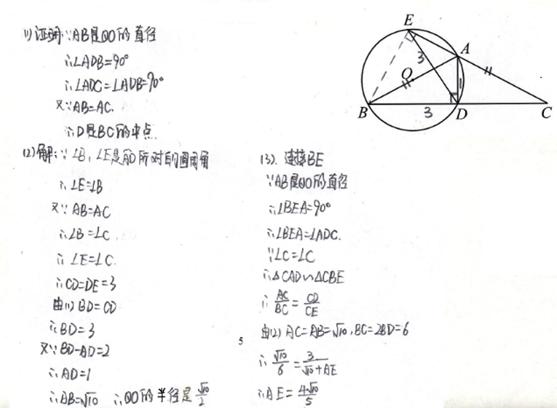 (1)证明:∵AB是⊙O的直径
∴∠ADB=90°
∴∠ADC=∠ADB=90°
又∵AB=AC.
∴D是BC的中点.
(2)解:∵∠B,∠E是AD所对的圆周角
∴∠E=∠B
又∵AB=AC
∴∠B=∠C.
∴∠E=∠C.
∴CD=DE=3
由(1)BD=CD
∴BD=3
又∵BD-AD=2
∴AD=1
∴AB=√10 ∴⊙O的半径是√10/2
(3). 连接BE
∵AB是⊙O的直径
∴∠BEA=90°
∴∠BEA=∠ADC.
∵∠C=∠C
∴△CAD∽△CBE
∴AC/BC=CD/CE
由(2)AC=AB=√10,BC=2BD=6
∴√10/6=3/(√10+AE)
∴AE=4√10/5
5
E
3
A
O
B
3
D
C